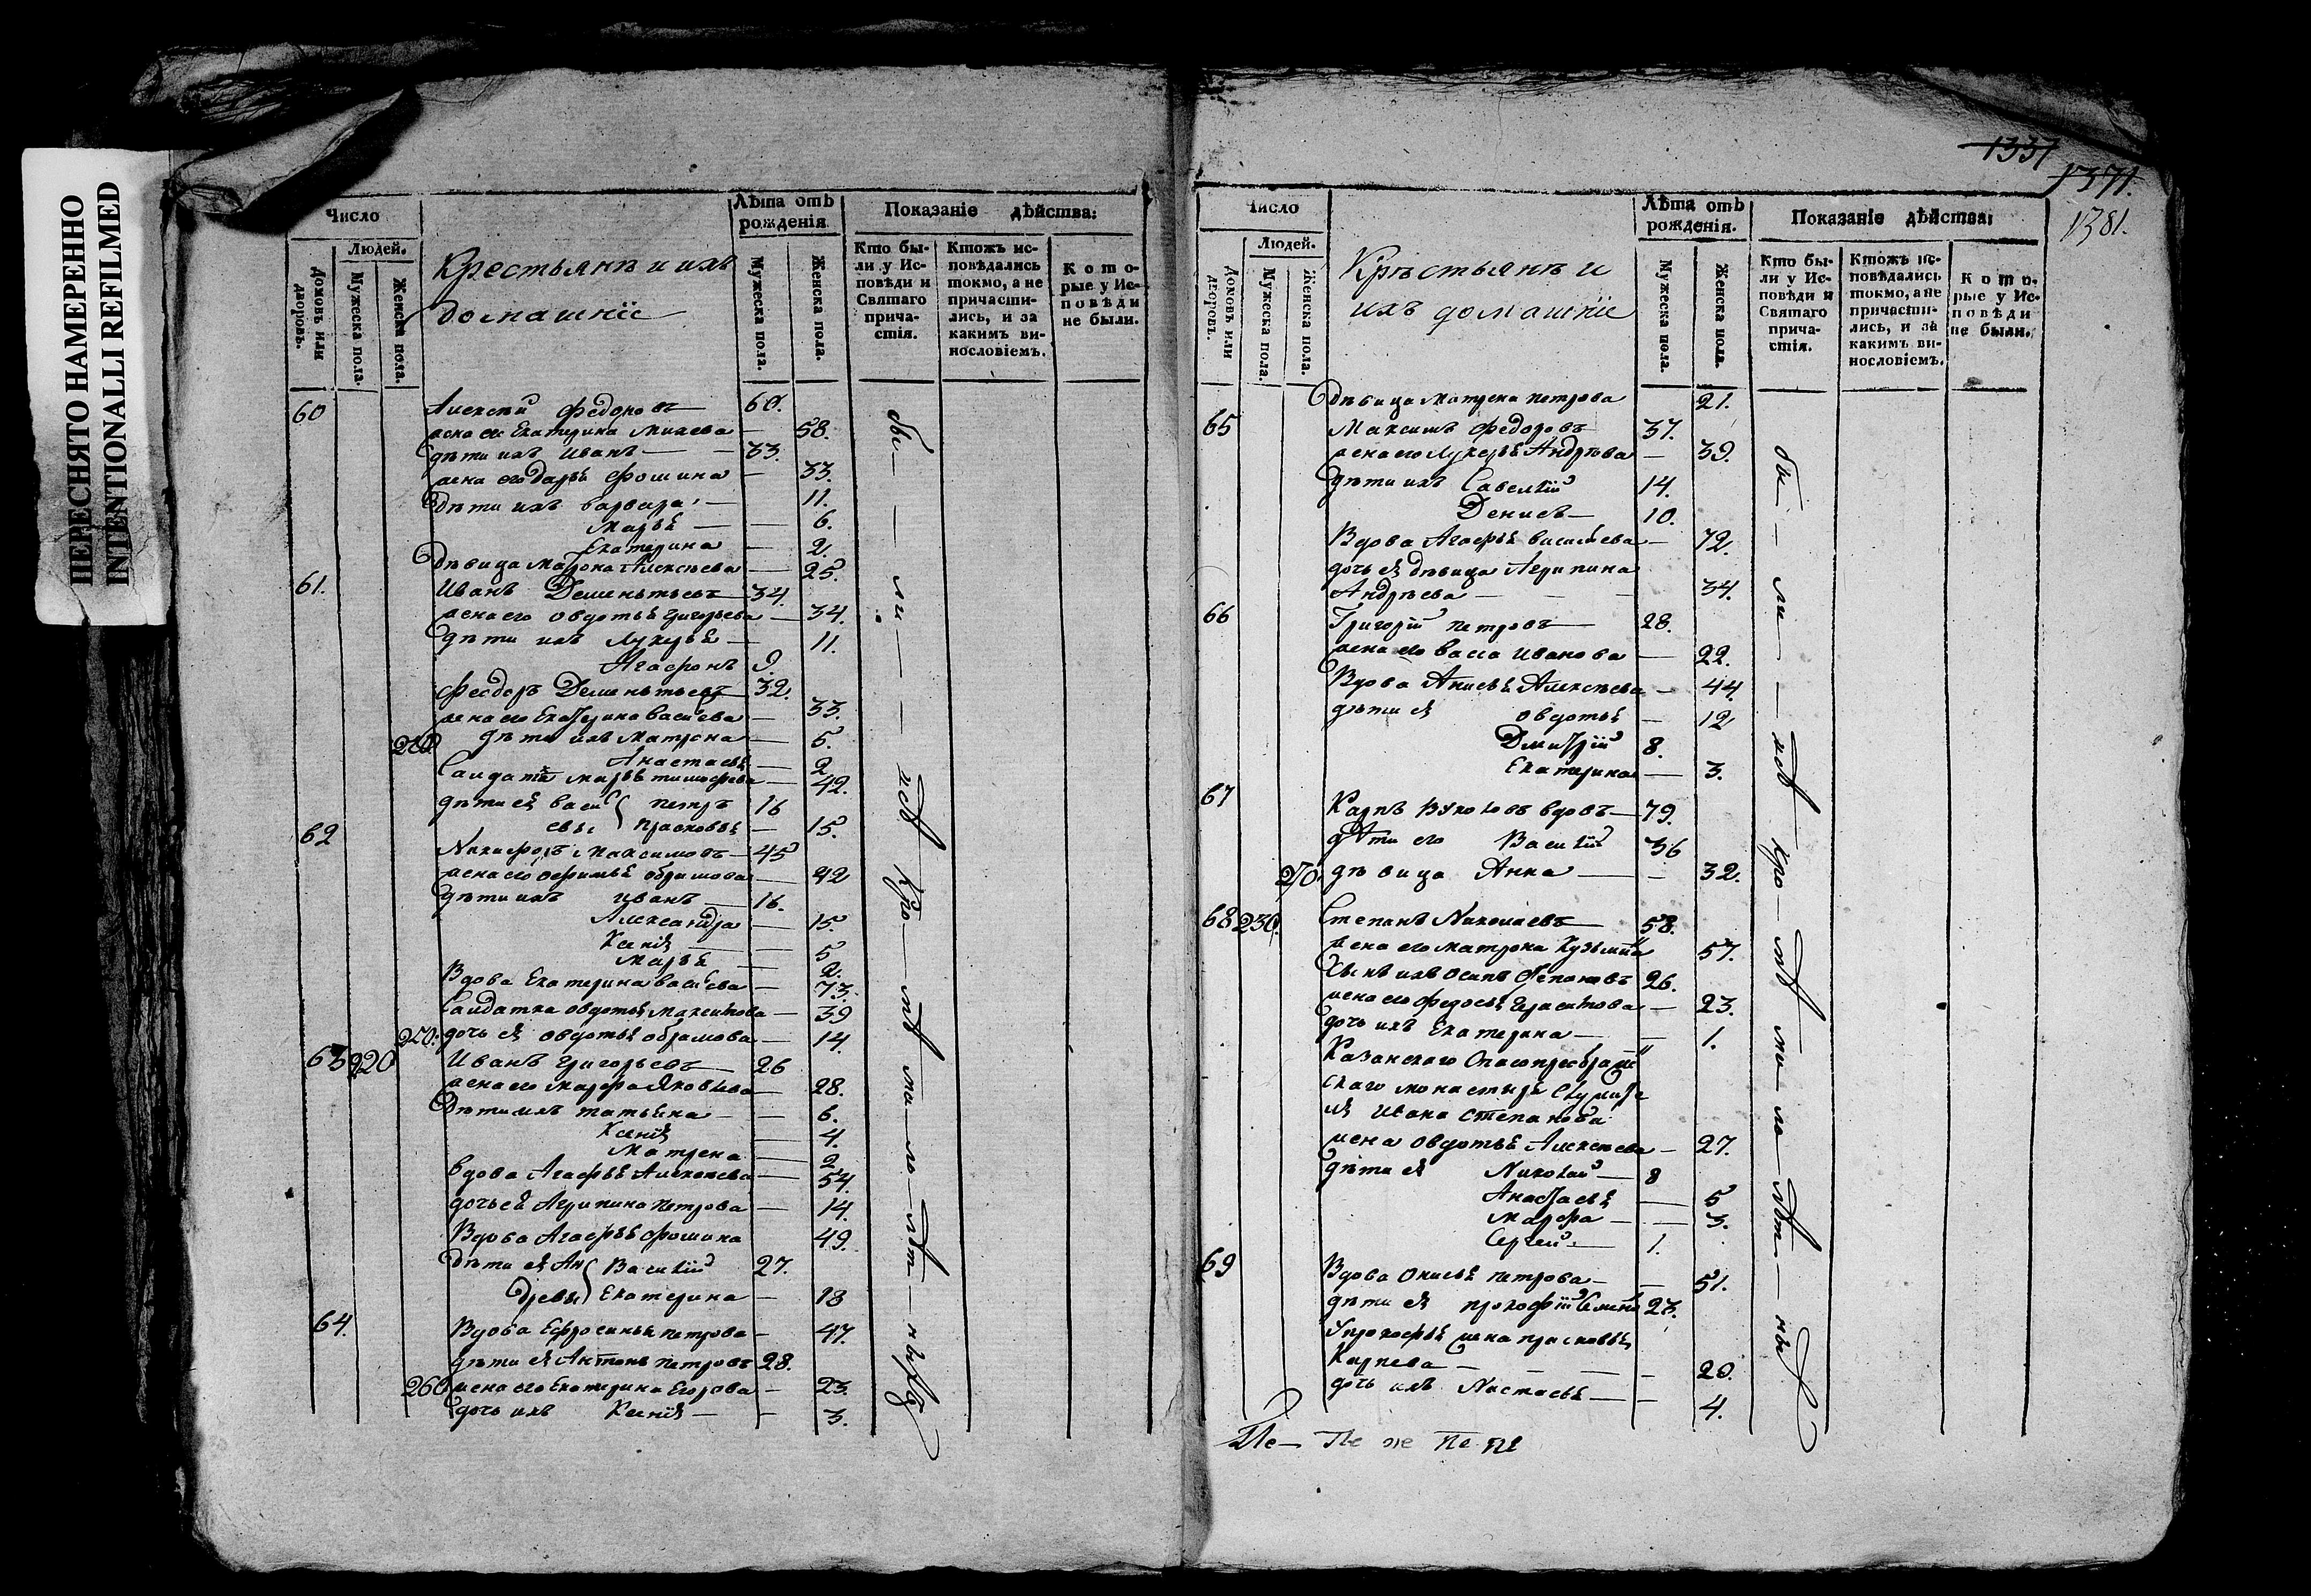 ПЕРЕСНЯТО НАМЕРЕННО
INTENTIONALLI REFILMED
Число
Людей.
Домовъ или дворовъ.
Мужеска пола.
Женска пола.
Крестьянѣ и ихъ
домашніе
Лѣта отъ рожденія
Мужеска пола.
Женска пола.
Показаніе дѣйства:
Кто бы-
ли у Ис-
повѣди и
Святаго
прича-
стія.
Ктожъ ис-
повѣдались
токмо, а не
причасти-
лись, и за
какимъ ви-
нословіемъ.
Кото-
рые у Ис-
повѣди
не были.
60 Алексѣй Федоровъ 60.
жена ег Екатерина Михева — 58.
дѣти ихъ Иванъ — — 33.
жена его Дарья Фомина — 33.
дѣти ихъ Варвара — 11.
Марья — — 6.
Екатерина — 2.
дѣвица Матрона Алексѣева — 25.
61. Иванъ Дементьевъ — 34.
жена его Овдотья Григорьева — 34.
дѣти ихъ Лукерья — 11.
Агафонъ 9
Феодоръ Дементьевъ 32.
жена его Екатерина Васиева — 33.
дѣти ихъ Матрона — 5.
Анастасья — 2
Салдатка Марья Тимофеева — 42.
дѣти ея Васи Петръ 16
евы Прасковья — 15.
62 Никифоръ Максимовъ — 45
жена его Офимья Обрамова — 42
дѣти ихъ Иванъ — 16.
Александра — 15.
Ксенія — — 5
Марья — 2.
Вдова Екатерина Васиева — 73.
Салдатка Овдотья Максимова — 39
250. дочь ея Овдотья Обрамова — 14.
63 220 Иванъ Григорьевъ 26
жена его Марфа Яковлева — 28.
дѣти ихъ Татьяна — — 6.
Ксенія — 4.
Матрена — 2
Вдова Агафья Алексѣева — 54.
дочь ея Агрипина Петрова — 14.
Вдова Агафья Фомина 49.
дѣти ея Ан Василій 27.
древы Екатерина — 18
64. Вдова Ефросинья Петрова — 47.
дѣти ея Антонъ Петровъ 28.
260 жена его Екатерина Егорова — 23.
дочь ихъ Ксенія — — 3.
1337
1371.
1381.
Число
Людей.
Домовъ или дворовъ.
Мужеска пола.
Женска пола.
Крѣстьянѣ и
ихъ домашніе
Лѣта отъ рожденія.
Мужеска пола.
Женска пола.
Показаніе дѣйства:
Кто бы-
ли у Ис-
повѣди и
Святаго
прича-
стія.
Ктожъ ис-
повѣдались
токмо, а не
причасти-
лись, и за
какимъ ви-
нословіемъ.
Кото-
рые у Ис-
повѣди
не были.
дѣвица Матрена Петрова 21.
65 Максимъ Федоровъ 37.
жена его Лукерья Андрѣева — 39.
дѣти ихъ Савелій 14.
Денисъ — 10.
Вдова Агафья Васильева — 72.
дочь ея дѣвица Агрипина
Андрѣева — — — 34.
66 Григорій Петровъ — 28.
жена его Васса Иванова — 22.
Вдова Анисья Алексѣева — 44.
дѣти ея Овдотья — 12
Дмитрій 8.
Екатерина — 3.
67 Карпъ Вуколовъ вдовъ — 79.
дѣти его Василій 36
270. дѣвица Анна — — 32.
68 230. Степанъ Николаевъ — 58.
жена его Матрона Кузьмина 57.
Сынъ ихъ Осипъ Степановъ 26.
жена его Федосья Герасимова — 23.
дочь ихъ Екатерина — — 1.
Казанскаго Спасопреображен
скаго монастыря служите
ля Ивана Степанова
жена Овдотья Алексѣева — 27.
дѣти ея Николай — 8
Анастасья — 5
Марфа — — 3.
Сергей — 1.
69 Вдова Онисья Петрова — — 51.
дѣти ея Прокофій Семенов 23.
У Прокофья жена Прасковья
Карпева — — — 20.
дочь ихъ Настасья — — 4.
Пе — Пе же Пе Пе